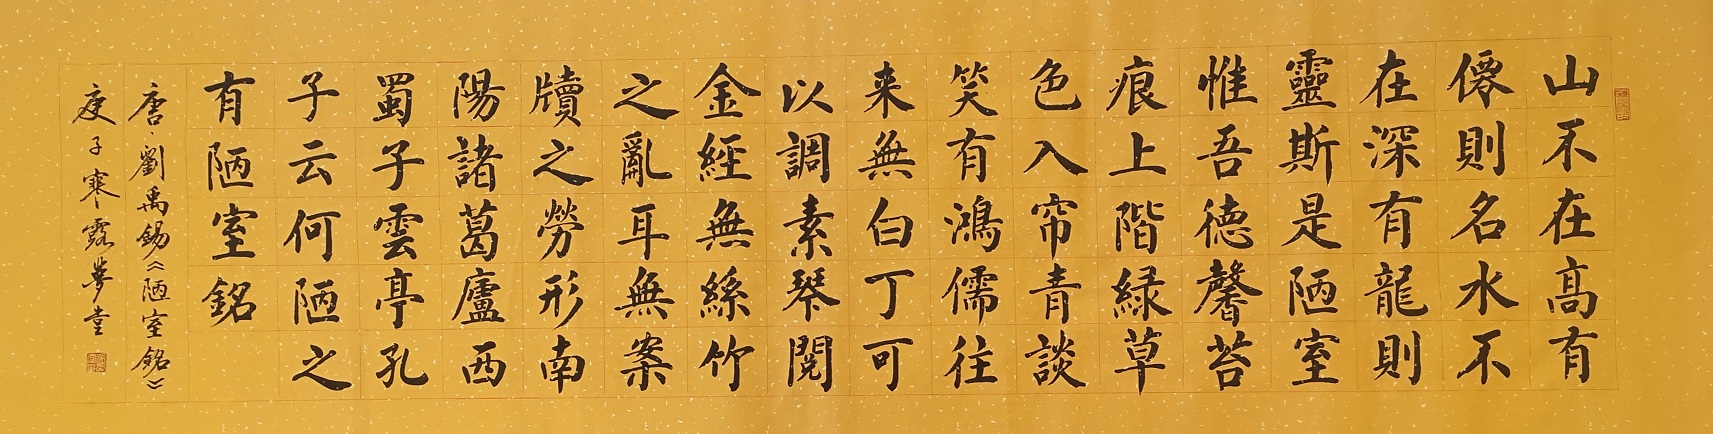 山不在高有
僊則名水不
在深有龍則
靈斯是陋室
惟吾德馨苔
痕上階緑草
色入帘青談
笑有鴻儒往
来無白丁可
以調素琴閱
金經無絲竹
之亂耳無案
牘之勞形南
陽諸葛廬西
蜀子雲亭孔
子云何陋之
有陋室銘
唐·劉禹錫《陋室銘》
庚子寒露夢堂